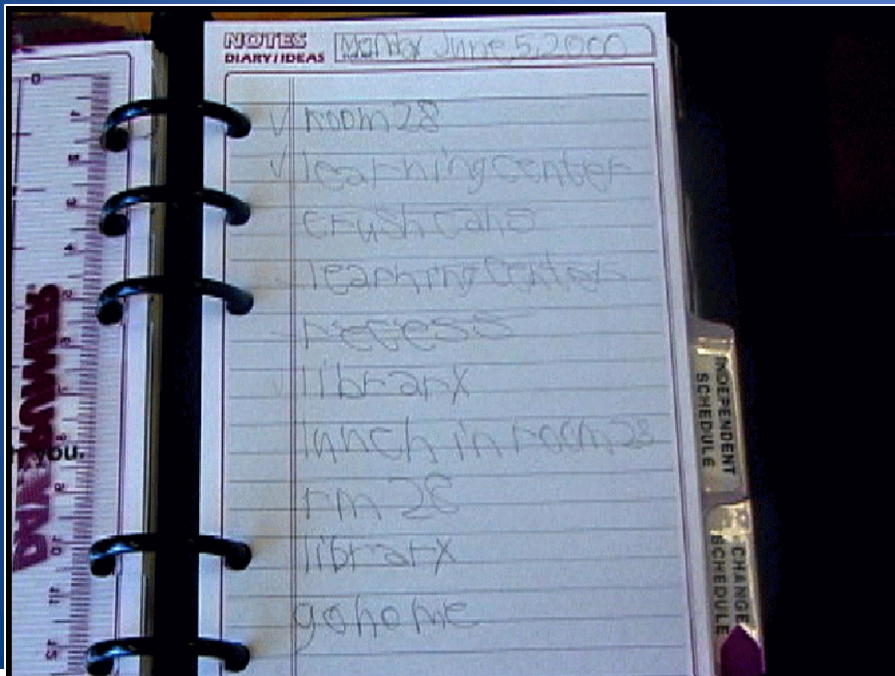 NOTES
DIARY/IDEAS
Monday June 5, 2000
✓ room 28
✓ learning center
crush cans
learning center
recess
library
lunch in room 28
rm 28
library
go home
you.
DAY RUNNER
INDEPENDENT
SCHEDULE
CHANGE
SCHEDULE